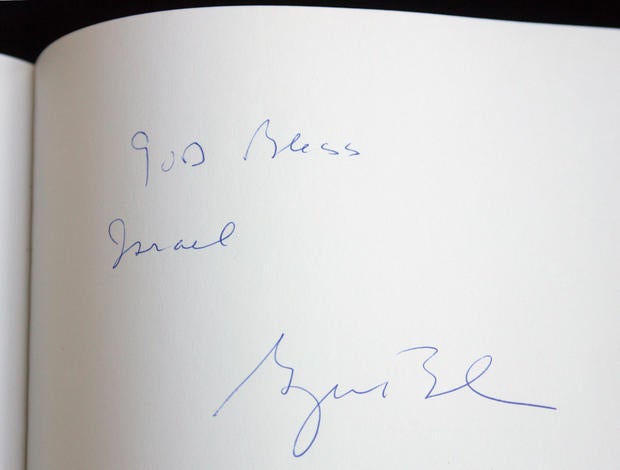 God Bless
Israel